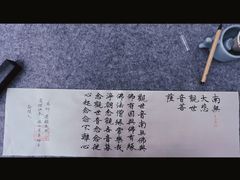 南無
大悲
觀世
音菩
薩
觀世音南無佛與
佛有因與佛有緣
佛法僧緣常樂我
淨朝念觀世音暮
念觀世音念念從
心起念念不離心